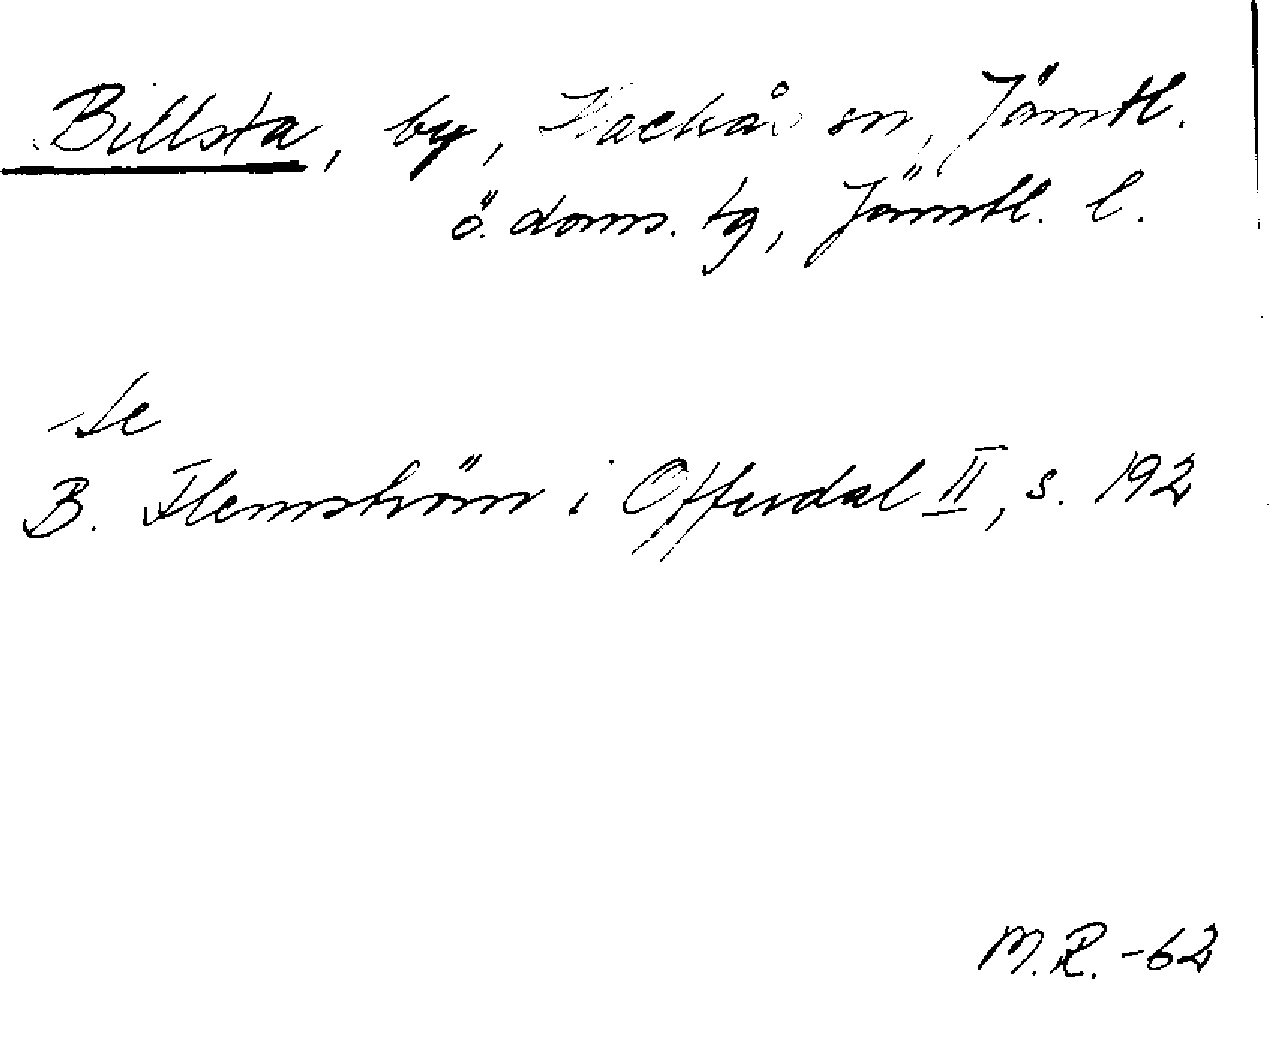 Billsta, by, Hackås sn, Jämtl.
ö. doms. tg, Jämtl. l.
Se
B. Flemström i Offerdal II, s. 192
M.R. -62